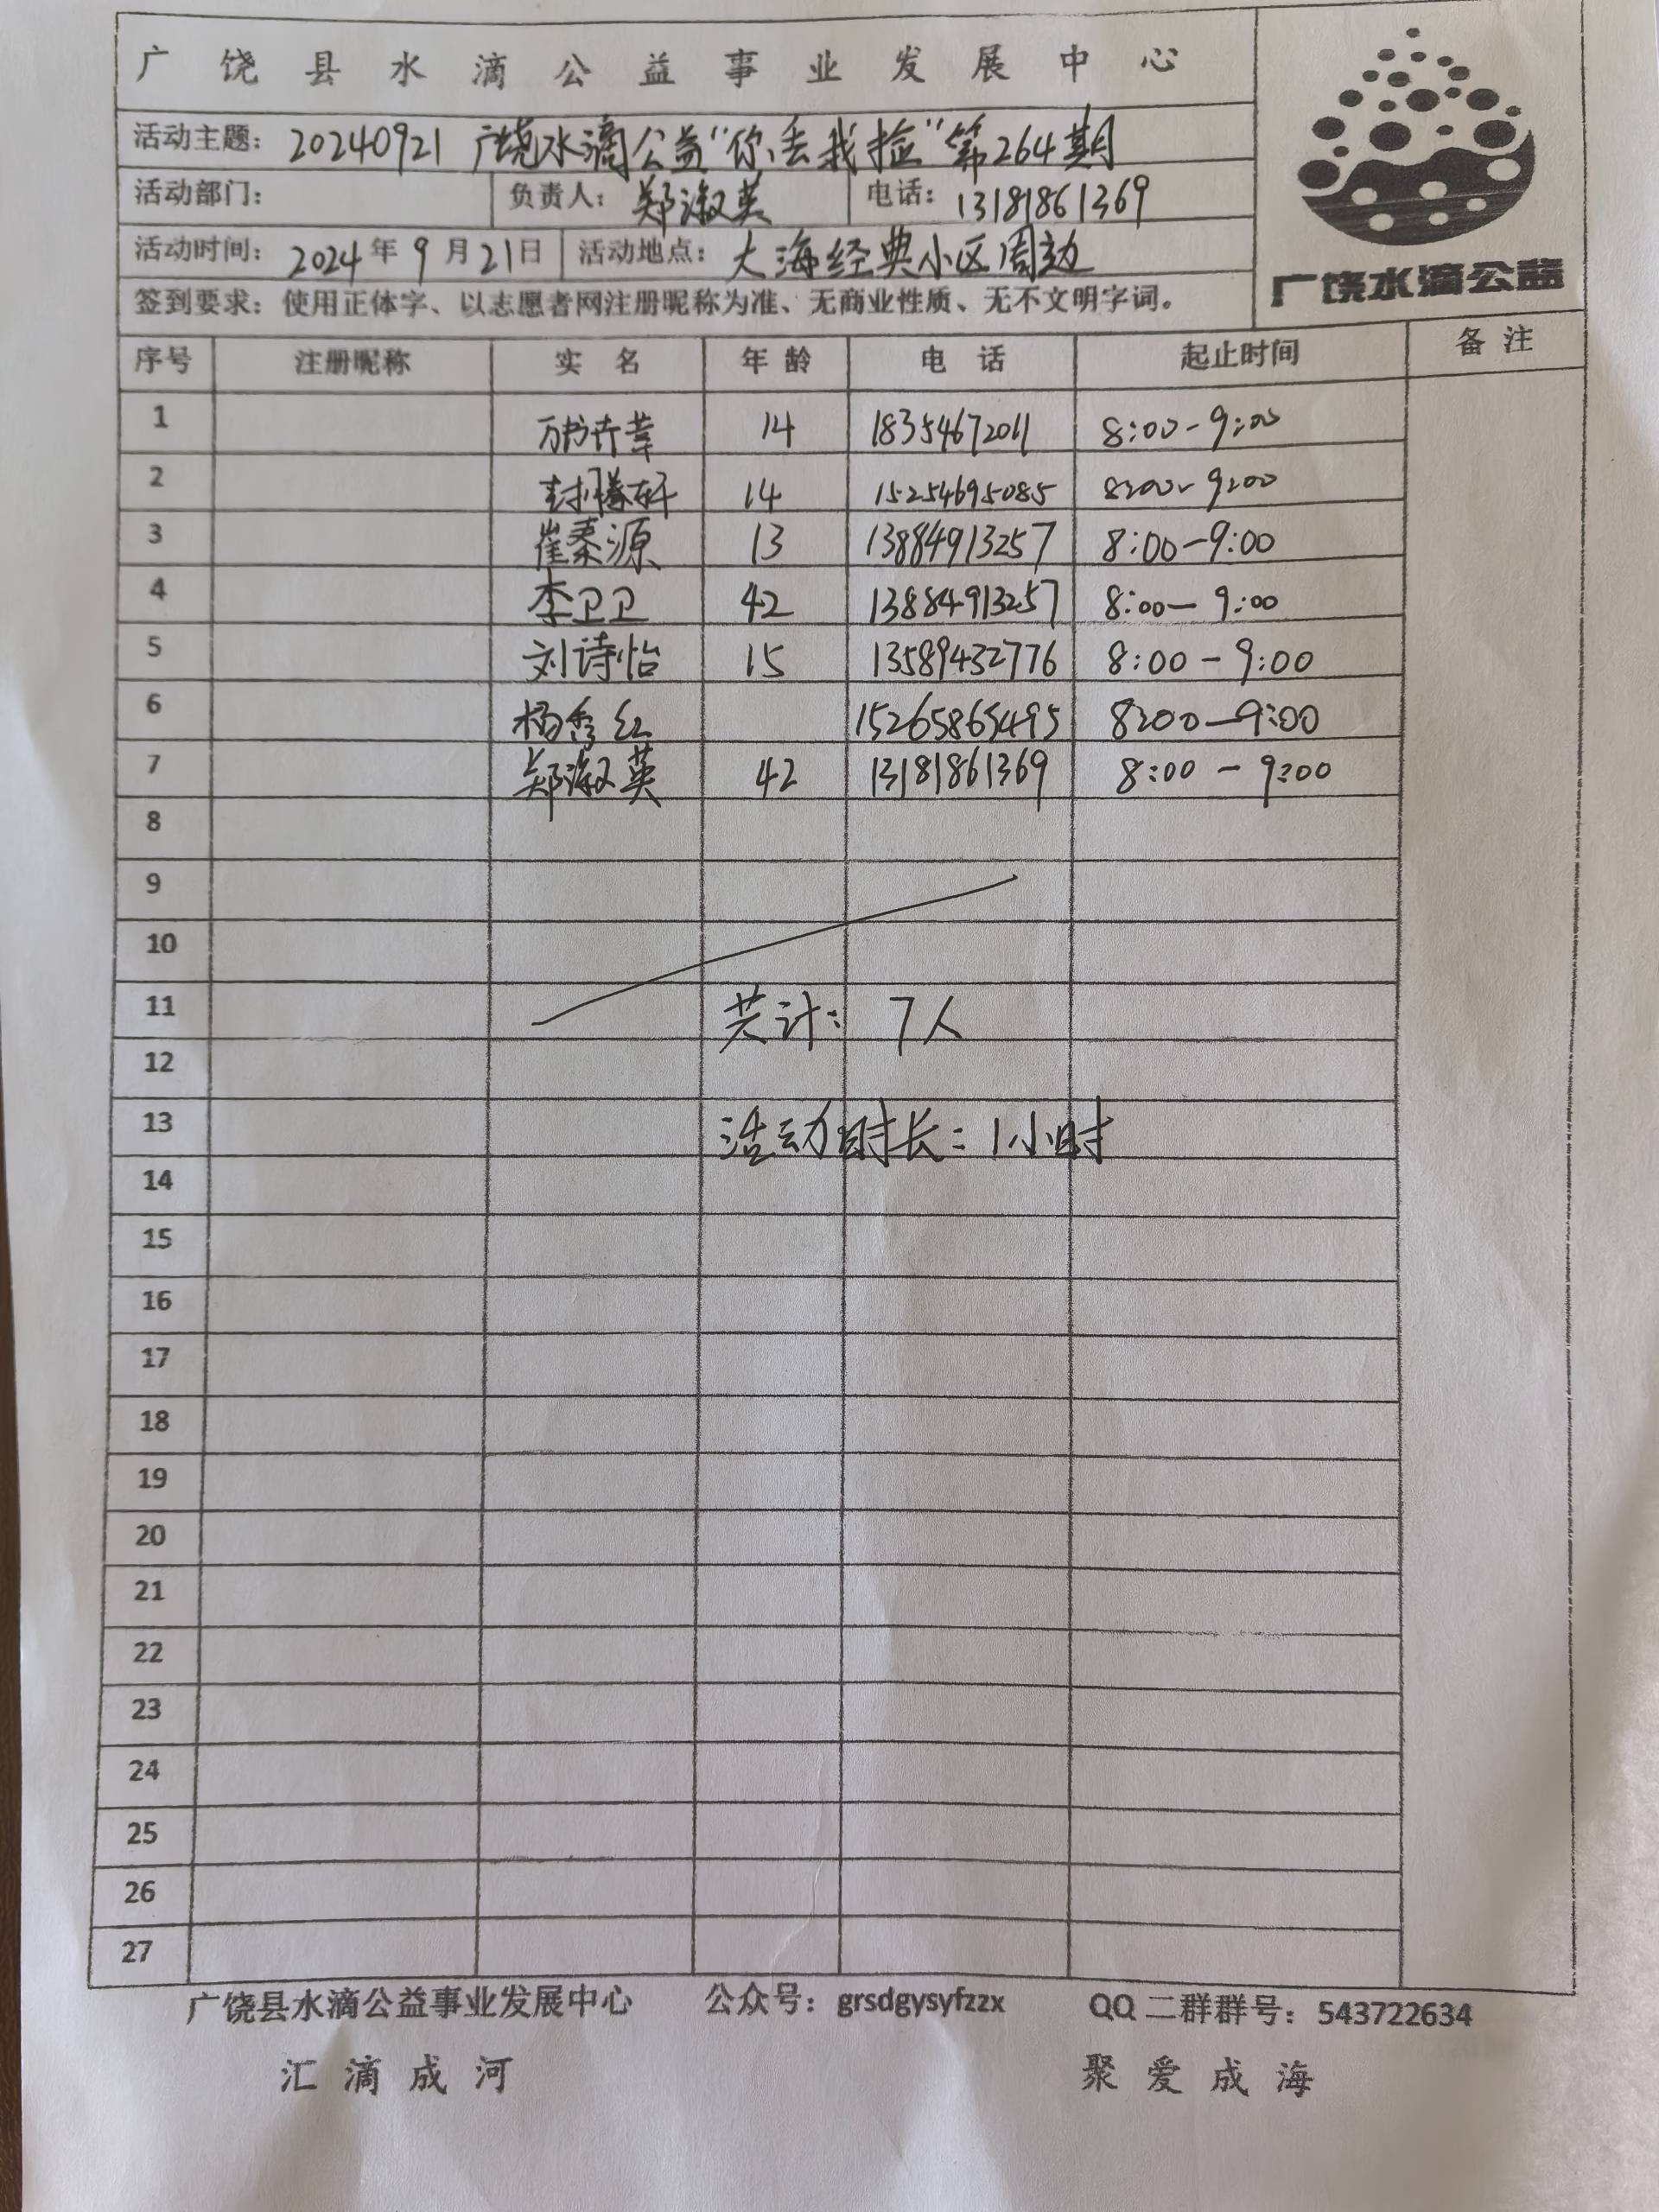 广饶县水滴公益事业发展中心
活动主题：20240921 广饶水滴公益“你丢我捡”第264期
活动部门： 负责人：郑淑英 电话：13181861369
活动时间：2024年9月21日 活动地点：大海经典小区周边
广饶水滴公益
签到要求：使用正体字、以志愿者网注册昵称为准、无商业性质、无不文明字词。
序号 注册昵称 实名 年龄 电话 起止时间 备注
1 14 18354672011 8:00-9:00
2 14 15254695085 8:00-9:00
3 崔泰源 13 13884913257 8:00-9:00
4 李卫卫 42 13884913257 8:00-9:00
5 刘诗怡 15 13589432776 8:00-9:00
6 杨秀红 15265865495 8:00-9:00
7 郑淑英 42 13181861369 8:00-9:00
8
9
10
11 共计：7人
12
13 活动时长：1小时
14
15
16
17
18
19
20
21
22
23
24
25
26
27
广饶县水滴公益事业发展中心 公众号：grsdgysyfzzx QQ二群群号：543722634
汇滴成河 聚爱成海